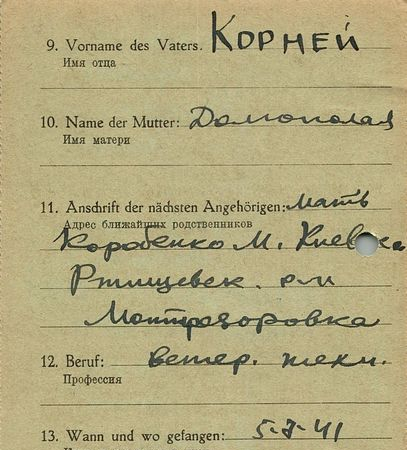 9. Vorname des Vaters. Корней
Имя отца
10. Name der Mutter: Домополая
Имя матери
11. Anschrift der nächsten Angehörigen: Мать
Адрес ближайших родственников
Коробенко М. Киевска
Ртищевск. р-н
12. Beruf: ветер. техн.
Профессия
13. Wann und wo gefangen: 5-7-41